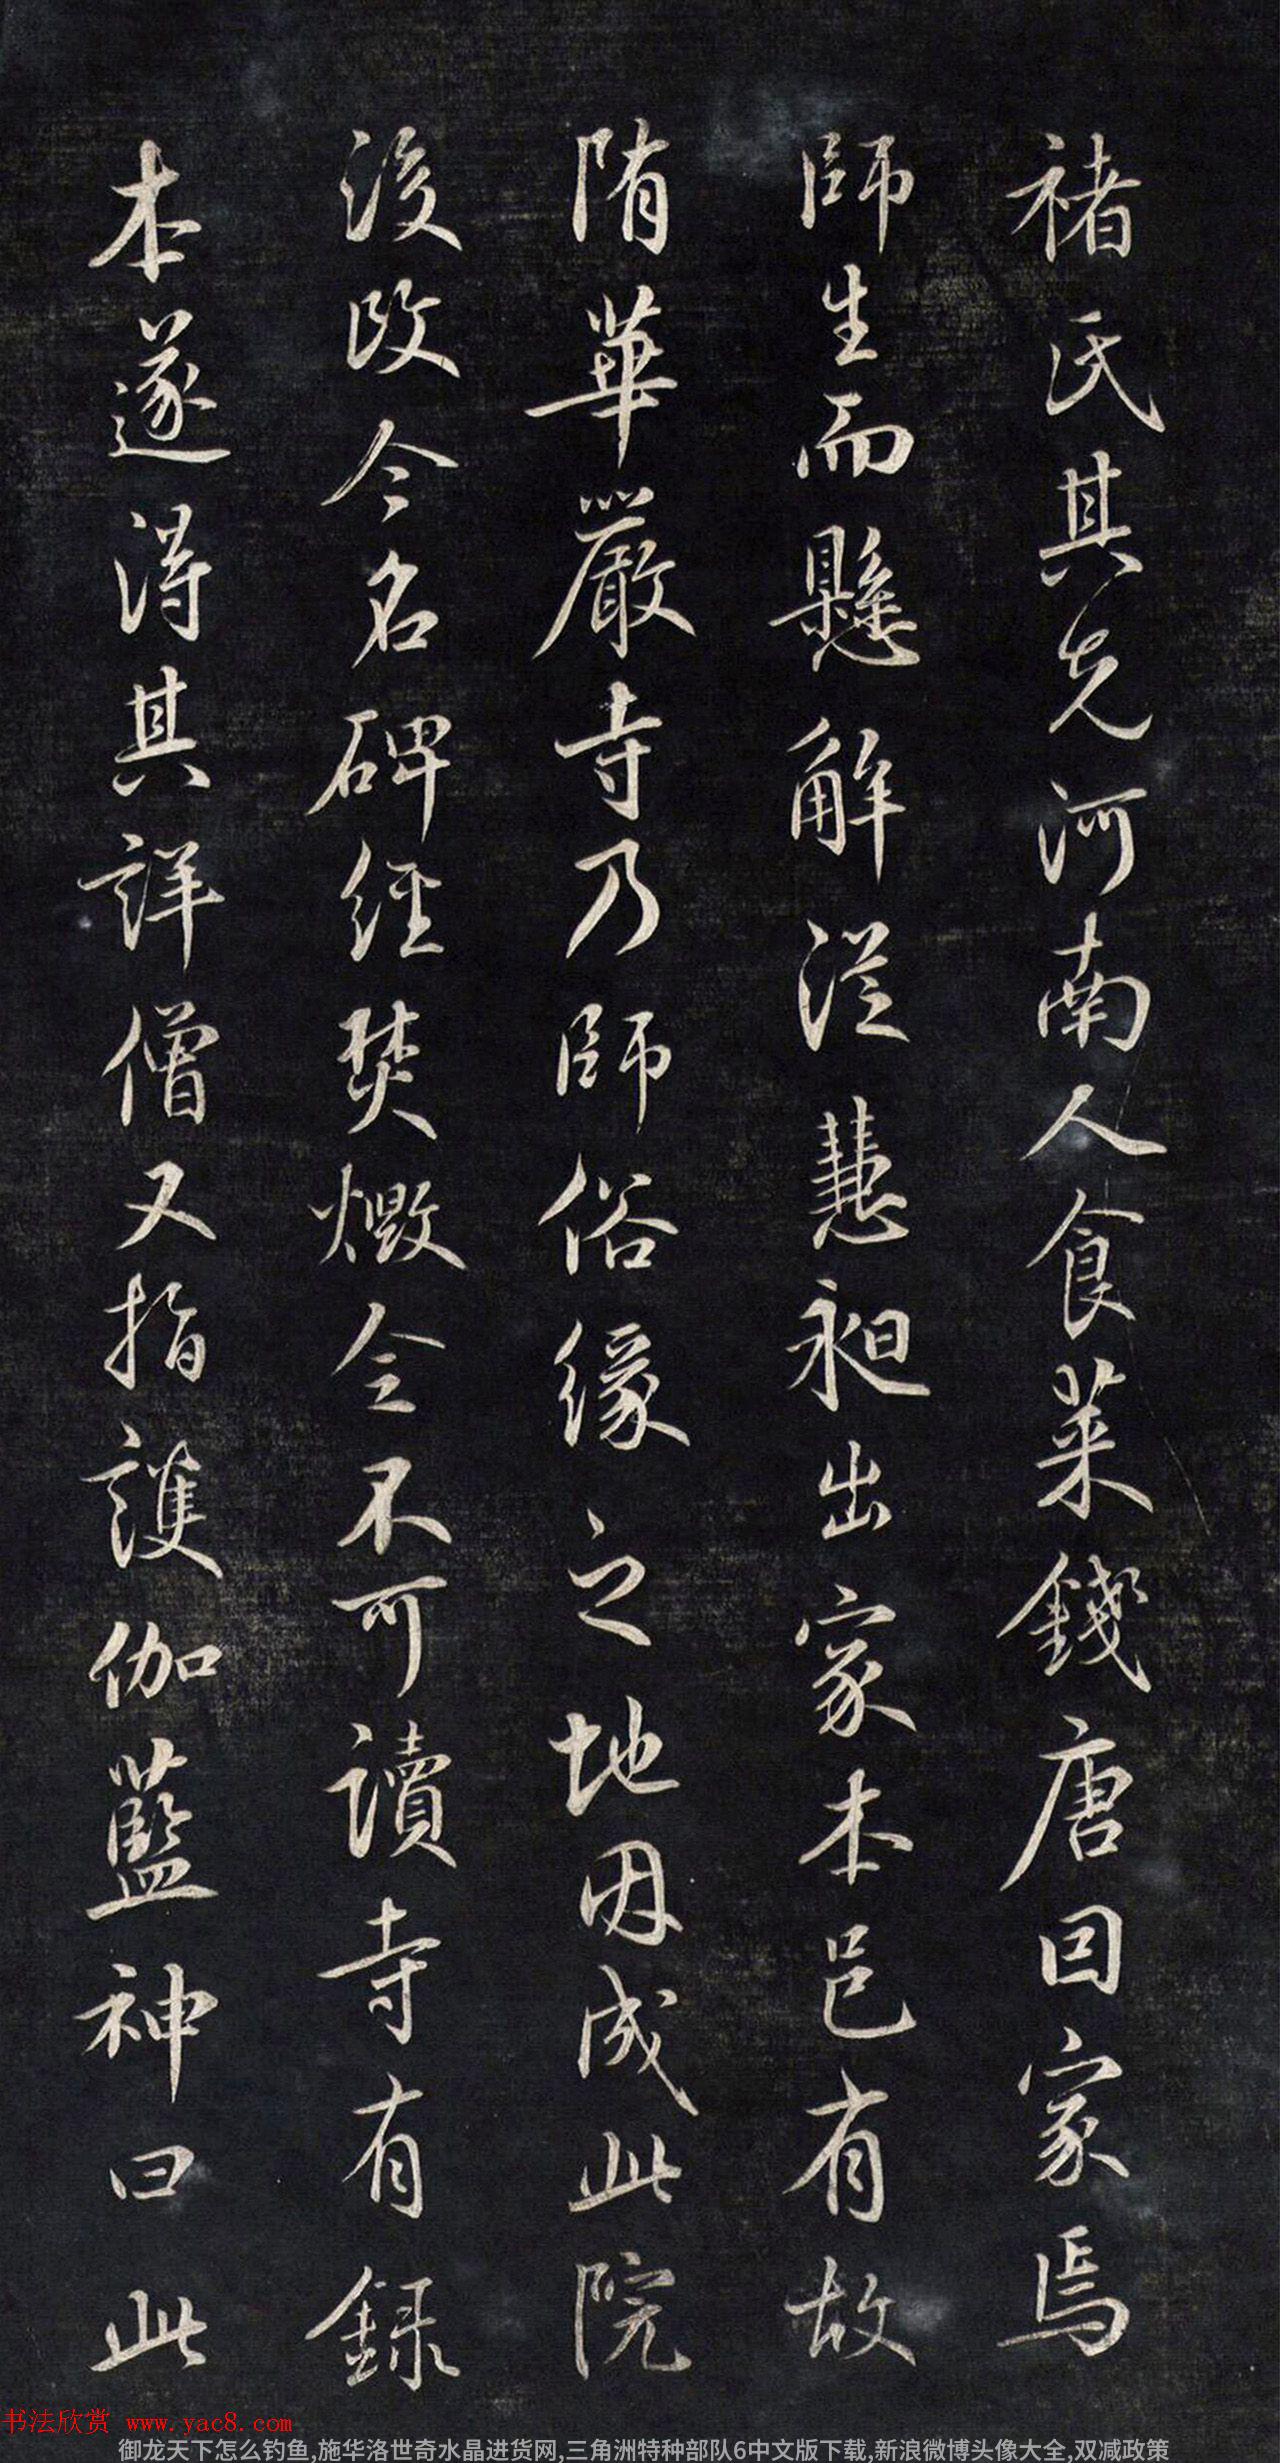 褚氏其先河南人食菜錢唐因家焉
師生而懸解從慧昶出家本邑有故
隋華嚴寺乃師俗緣之地因成此院
後改今名碑經焚燬令不可讀寺有錄
本遂得其詳僧又指護伽藍神曰此
书法欣赏 www.yac8.com
御龙天下怎么钓鱼,施华洛世奇水晶进货网,三角洲特种部队6中文版下载,新浪微博头像大全,双减政策